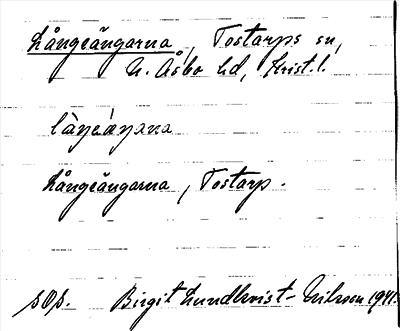 Långeängarna, Tostarps sn,
N. Åsbo hd, Krist. l.
Långeängarna, Tostarp.
sOp. Birgit Lundkvist-Nilsson 1941.